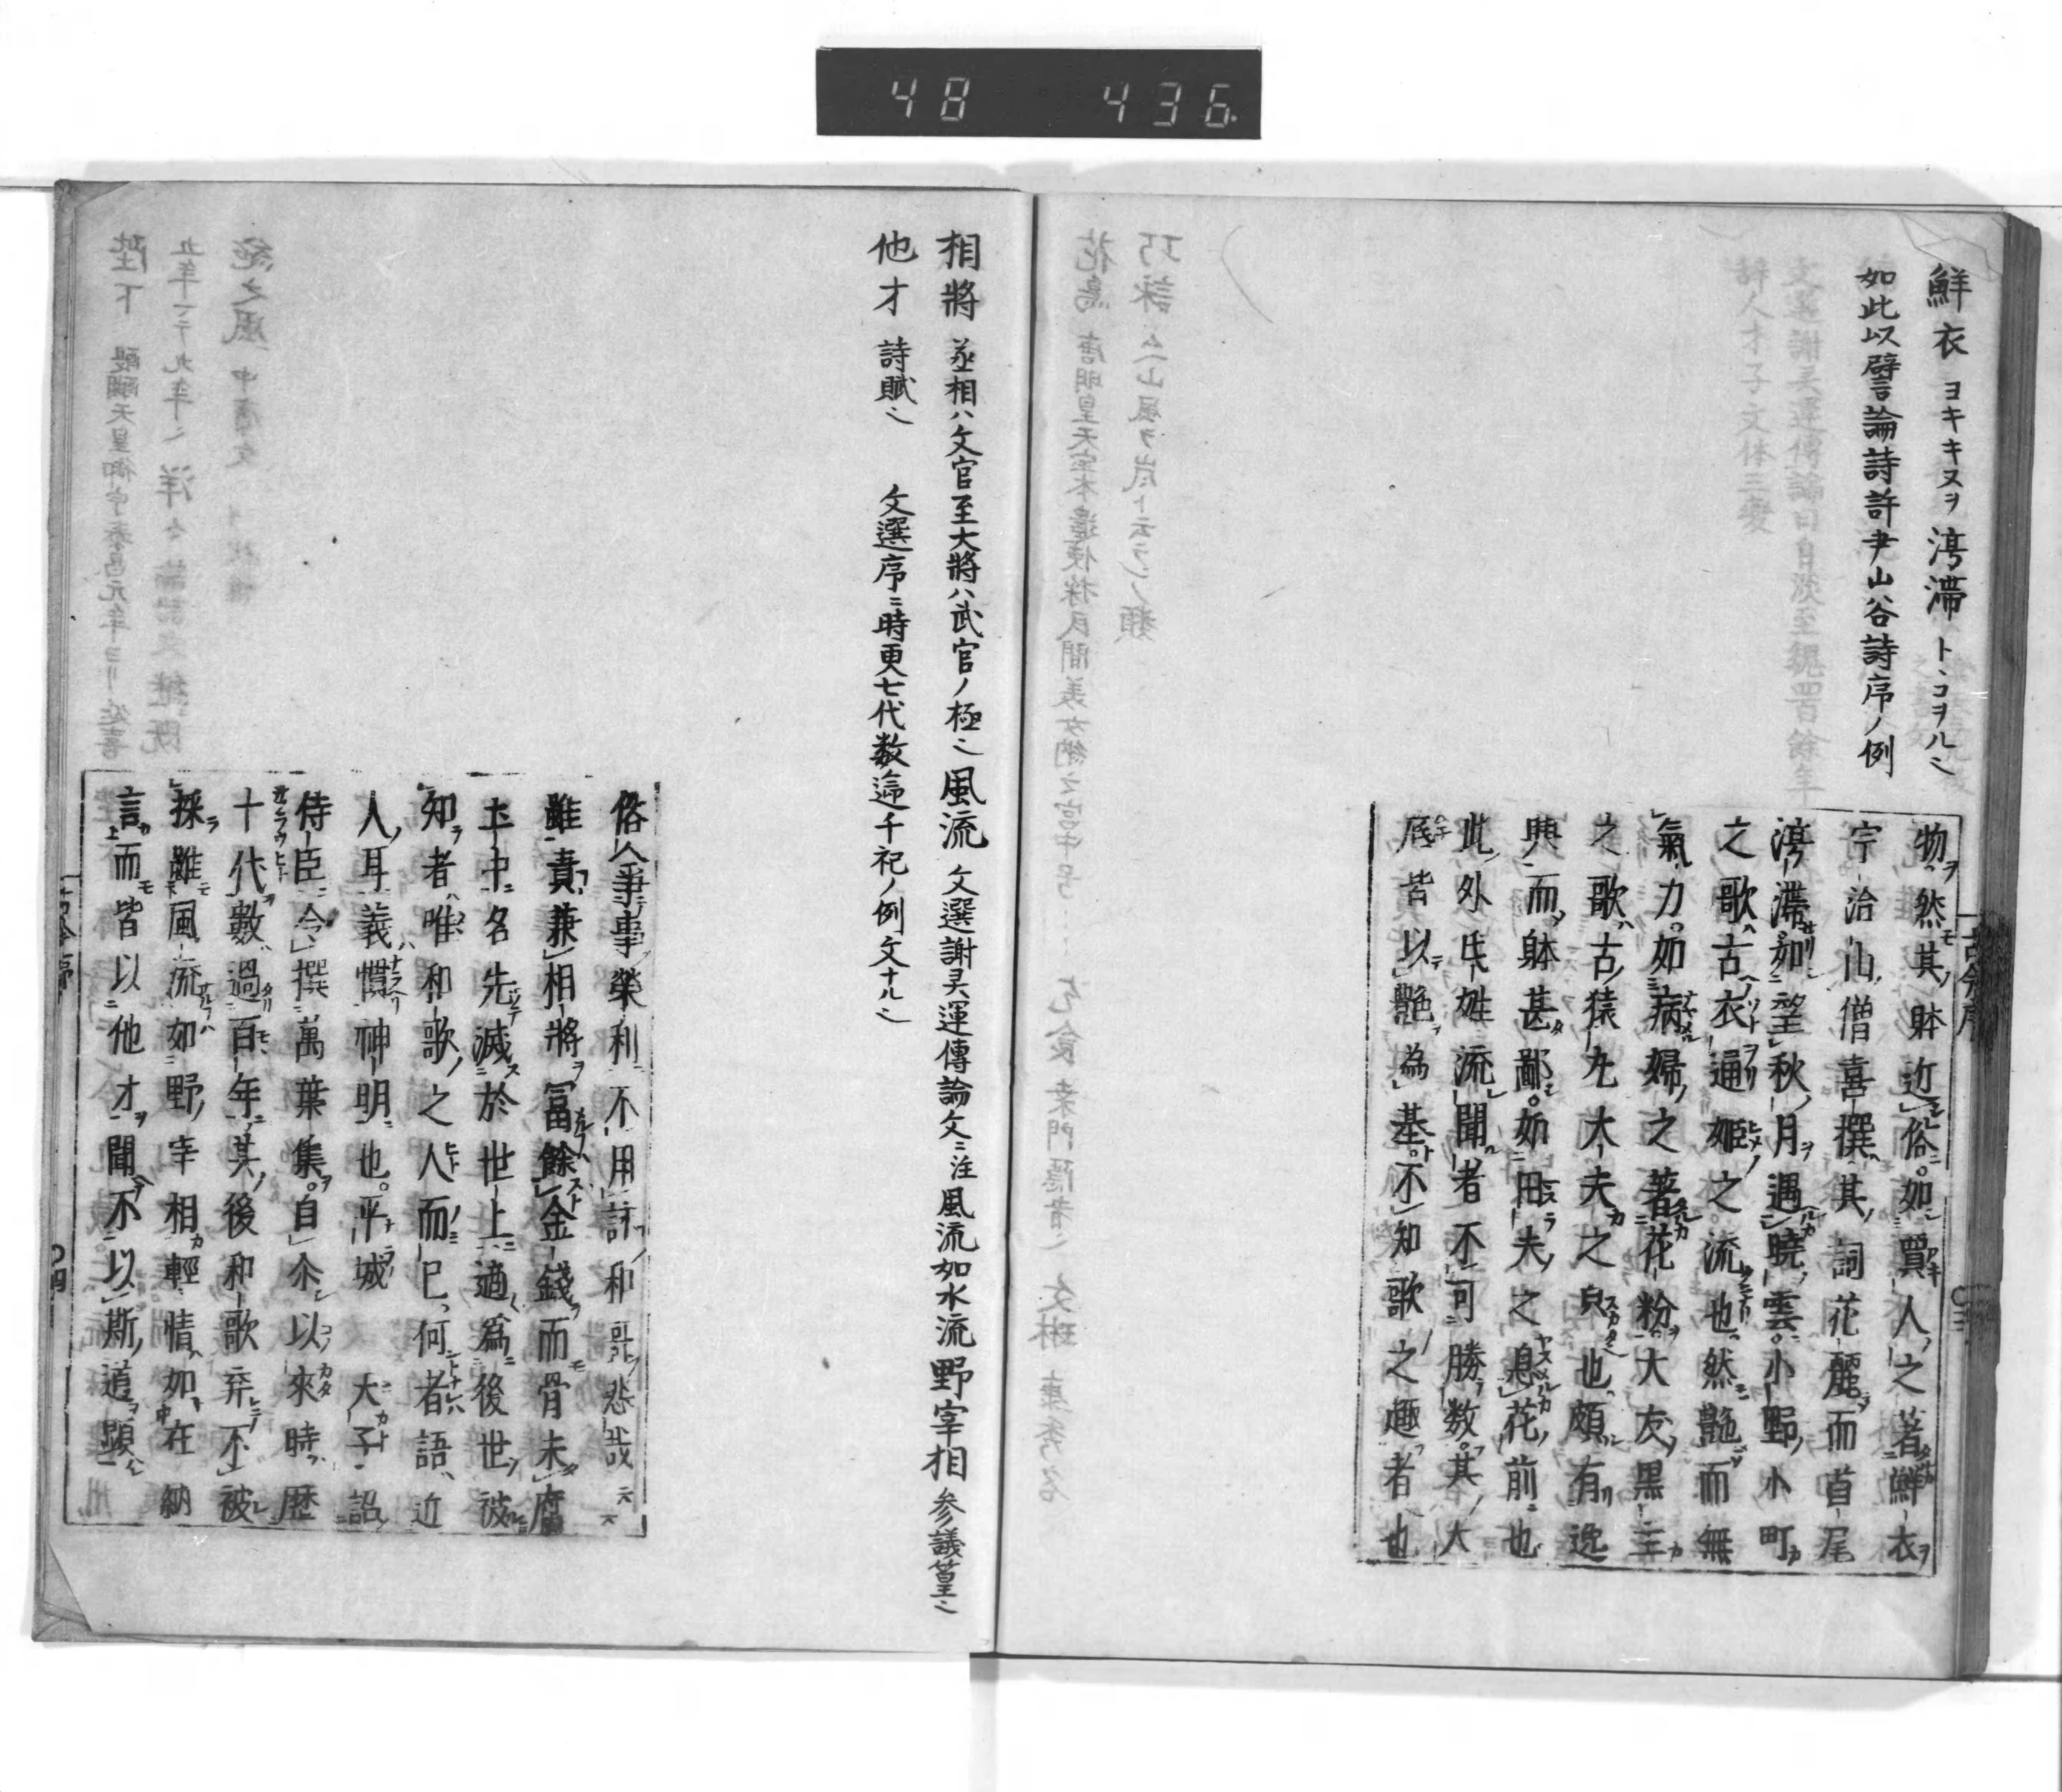 48 436
鮮衣 ヨキキヌヲ 渟滞 トヽコヲル〻
如此以譬論詩許尹山谷詩序ノ例
物然其躰近俗如買人之著鮮衣
宇治山僧喜撰其詞花麗而首尾
渟滞如望秋月遇暁雲小野小町
之歌古衣通姫之流也然艶而無
氣力如病婦之著花粉大友黒主
之歌古猿丸大夫之也頗有逸
興而躰甚鄙如田夫之息花前也
此外氏姓流聞者不可勝数其大
底皆以艶為基不知歌之趣者也
古今序
相將 丞相ハ文官至大將ハ武官ノ極〻 風流 文選謝灵運傳論文〻注風流如水流 野宰相 参議篁〻
他才 詩賦〻 文選序ニ時更七代数逾千祀ノ例文十ル〻
俗人争事榮利不用詠和哥悲哉〻〻
雖貴兼相將冨餘金錢而骨未腐
土中名先滅於世上適為後世被
知者唯和歌之人而已何者語近
人耳義慣神明也平城大子詔
侍臣令撰萬葉集自尒以來時歴
十代數過百年其後和歌弃不被
採雖風流如野宰相輕情如在納
言而皆以他才聞不以斯道顕